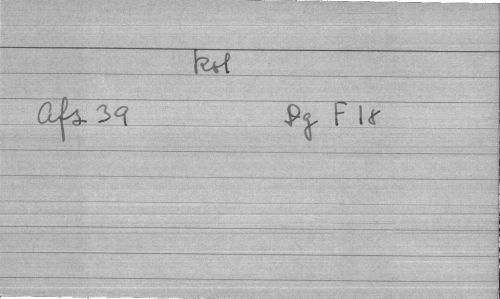 kol
Afs 39 Dg F 18